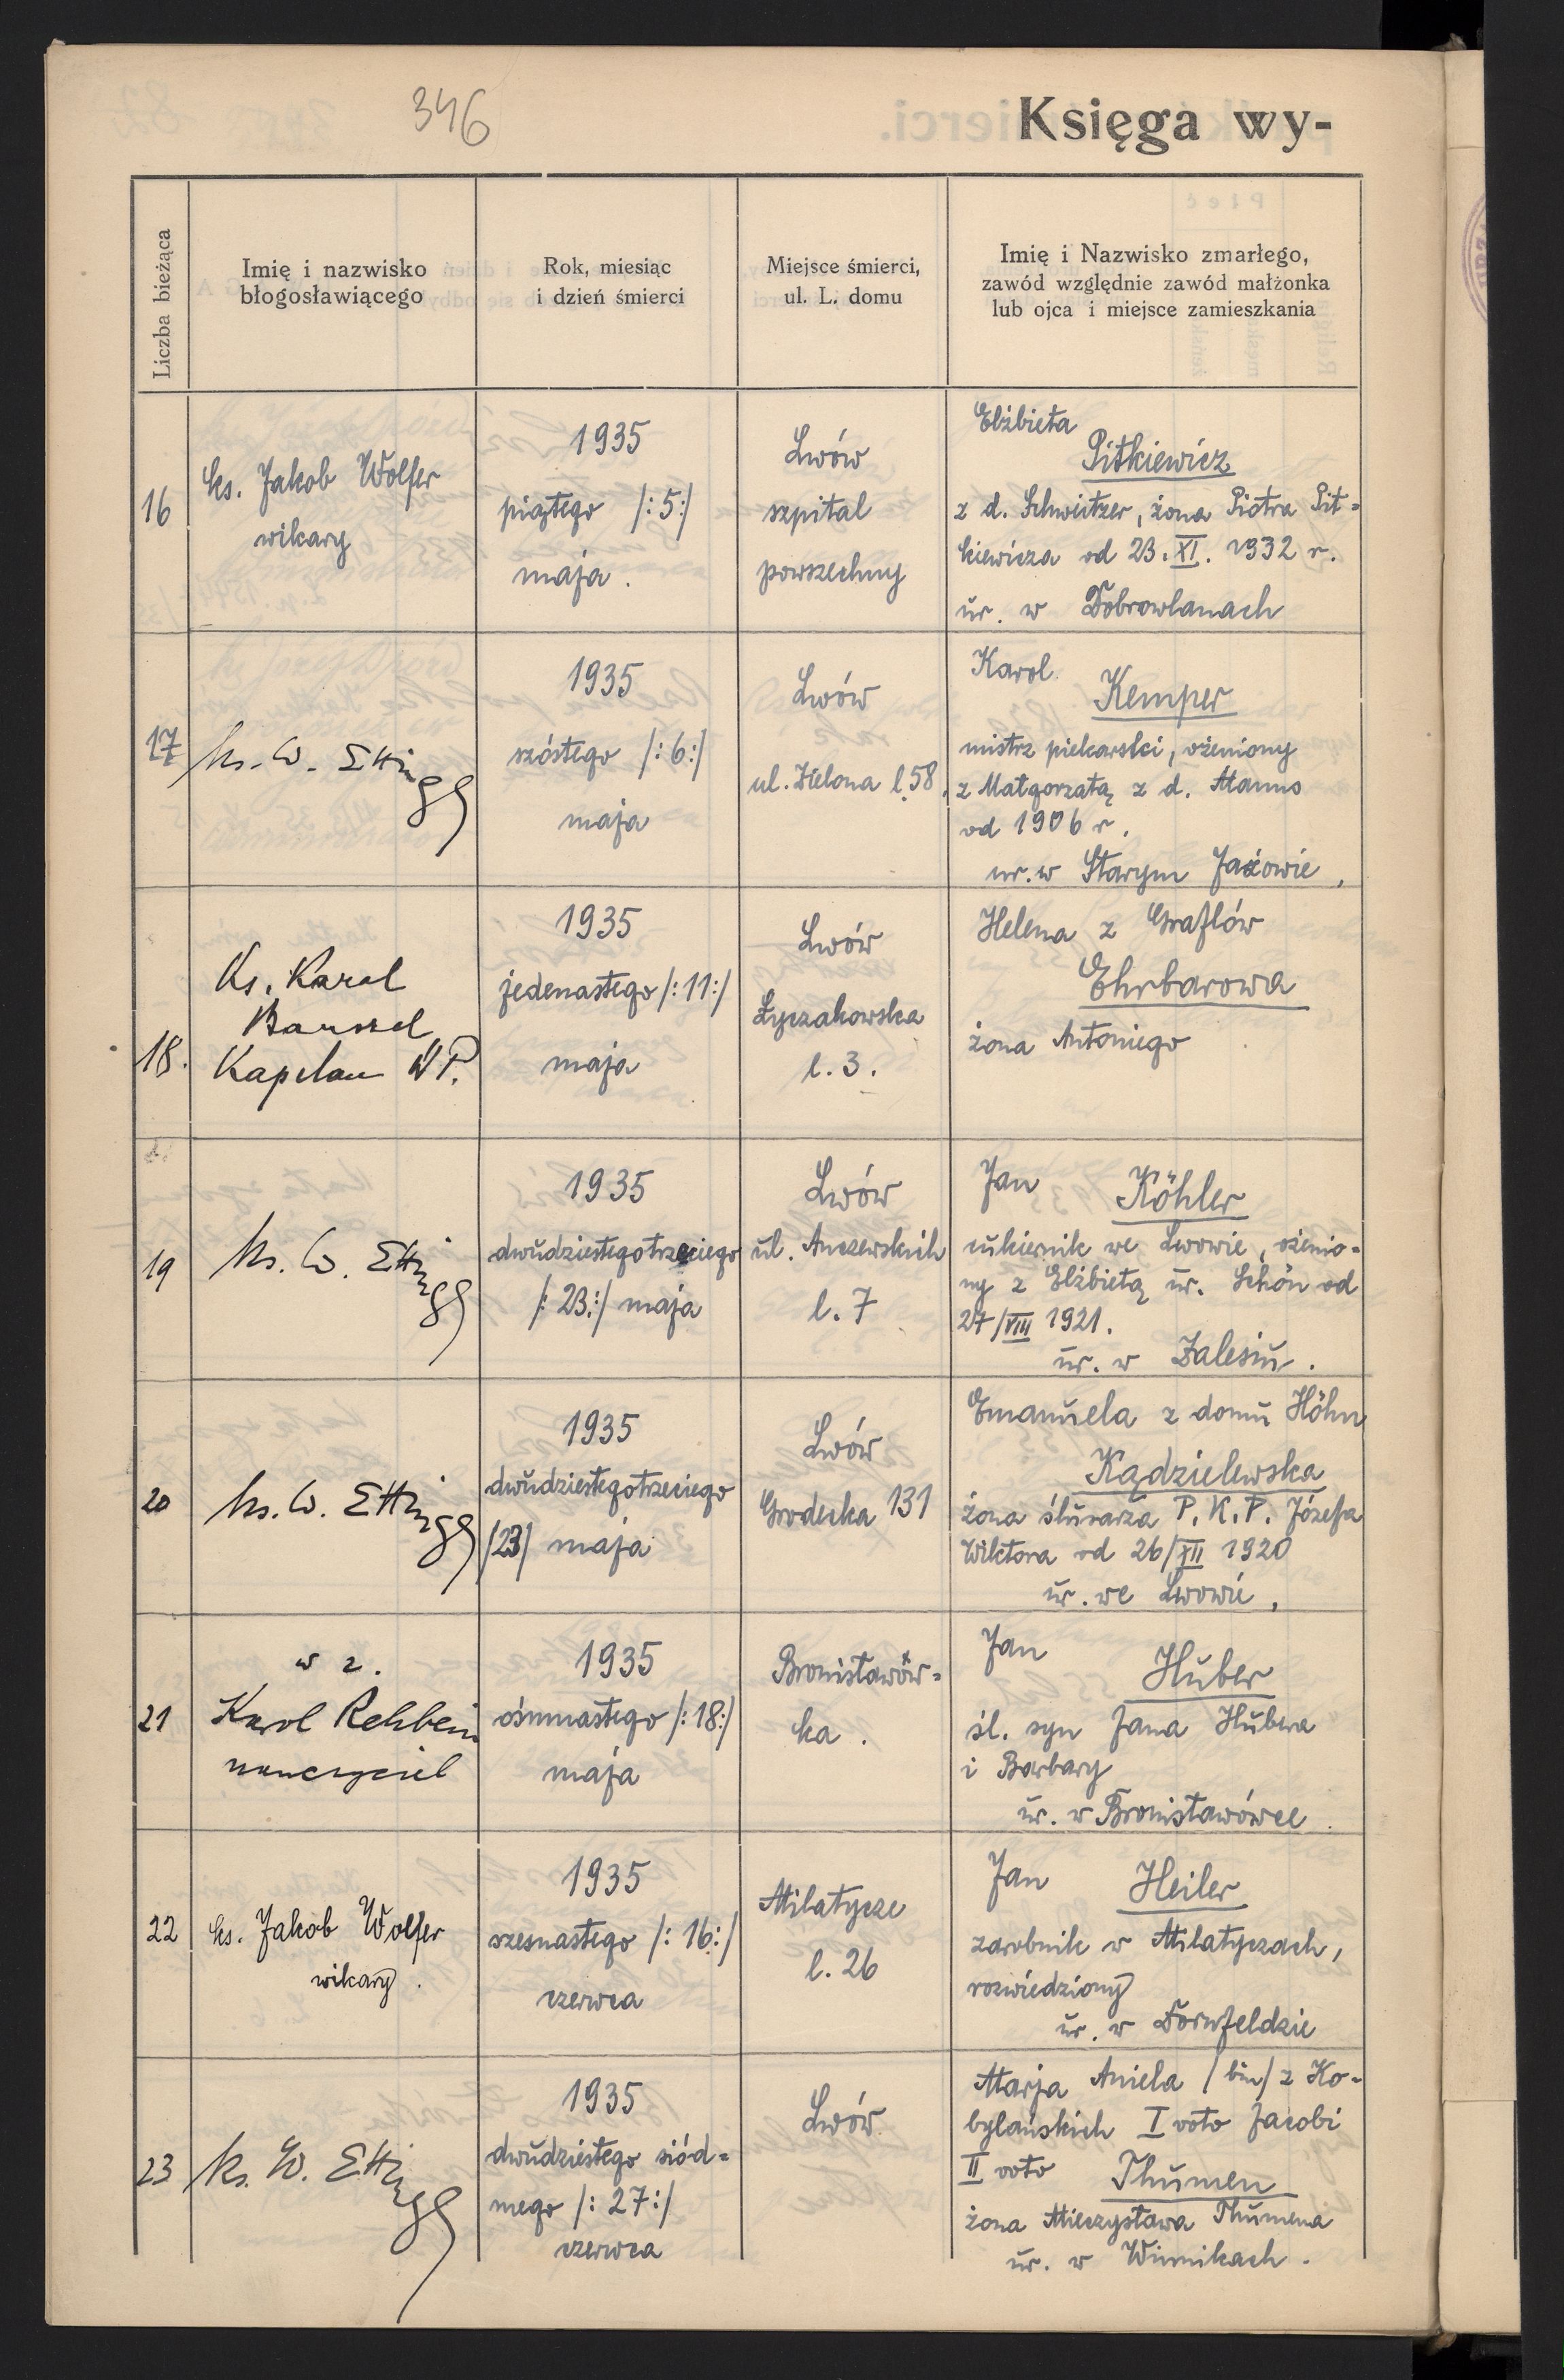 346
Księga wy-
Liczba bieżąca
Imię i nazwisko
błogosławiącego
Rok, miesiąc
i dzień śmierci
Miejsce śmierci,
ul. L. domu
Imię i Nazwisko zmarłego,
zawód względnie zawód małżonka
lub ojca i miejsce zamieszkania
16
ks. Jakob Wolfer
wikary
1935
piątego /:5:/
maja.
Lwów
szpital
powszechny
Elżbieta
Pitkiewicz
z d. Schweitzer, żona Piotra Pit=
kiewicza od 23.XI. 1932 r.
ur. w Dobrowlanach
17
ks. W. Ettinger
1935
szóstego /:6:/
maja
Lwów
ul. Zielona l.58.
Karol
Kemper
mistrz piekarski, ożeniony
z Małgorzatą z d. Manns
od 1906 r.
ur. w Starym Jażowie,
18.
Ks. Karol
Kapelan W.P.
1935
jedenastego /:11:/
maja
Lwów
Łyczakowska
l. 3.
Helena z Graflów
Ehrbarowa
żona Antoniego
19
ks. W. Ettinger
1935
dwudziestegotrzeciego
/:23:/ maja
Lwów
ul. Anczewskich
l. 7
Jan Köhler
cukiernik we Lwowie, ożenio=
ny z Elżbietą ur. Schön od
27/VIII 1921.
ur. w Zalesiu.
20
ks. W. Ettinger
1935
dwudziestegotrzeciego
/23/ maja
Lwów
Grodecka 131
Emanuela z domu Höhn
Kądzielewska
żona ślusarza P.K.P. Józefa
Wiktora od 26/XII 1920
ur. we Lwowie,
21
w z.
Karol Rehbein
nauczyciel
1935
ośmnastego /:18:/
maja
Bronisławów=
ka.
Jan
Huber
śl. syn Jana Hubera
i Barbary
ur. w Bronisławówce.
22
ks. Jakob Wolfer
wikary.
1935
szesnastego /:16:/
czerwca
Miłatycze
l. 26
Jan Heiler
zarobnik w Miłatyczach,
rozwiedziony
ur. w Dornfeldzie
23
ks. W. Ettinger
1935
dwudziestego siód=
mego /:27:/
czerwca
Lwów
Marja Aniela /bin/ z Ko=
bylańskich I voto Jacobi
II voto Thumen
żona Mieczysława Thumena
ur. w Winnikach.